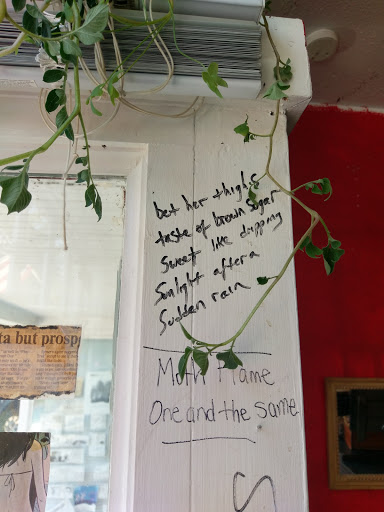 bet her thighs
taste of brown sugar
Sweet like dripping
Sunlight after a
Sudden rain
Moth Flame
One and the same
ta but prosp